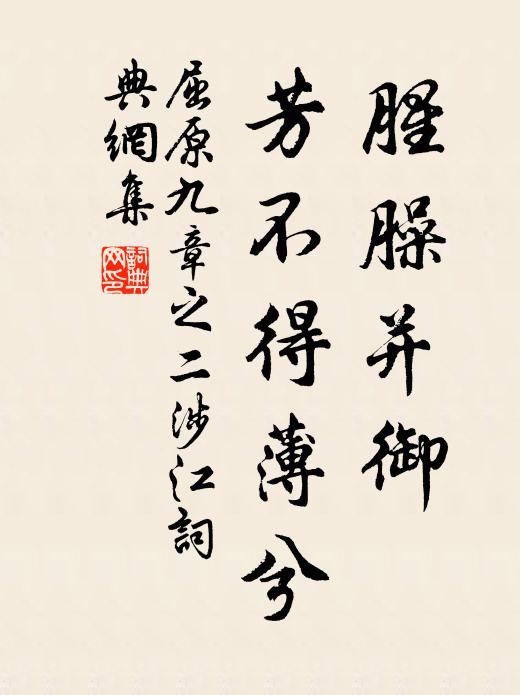 腥臊并御
芳不得薄兮
屈原九章之二涉江詞
典網集
詞典
网印